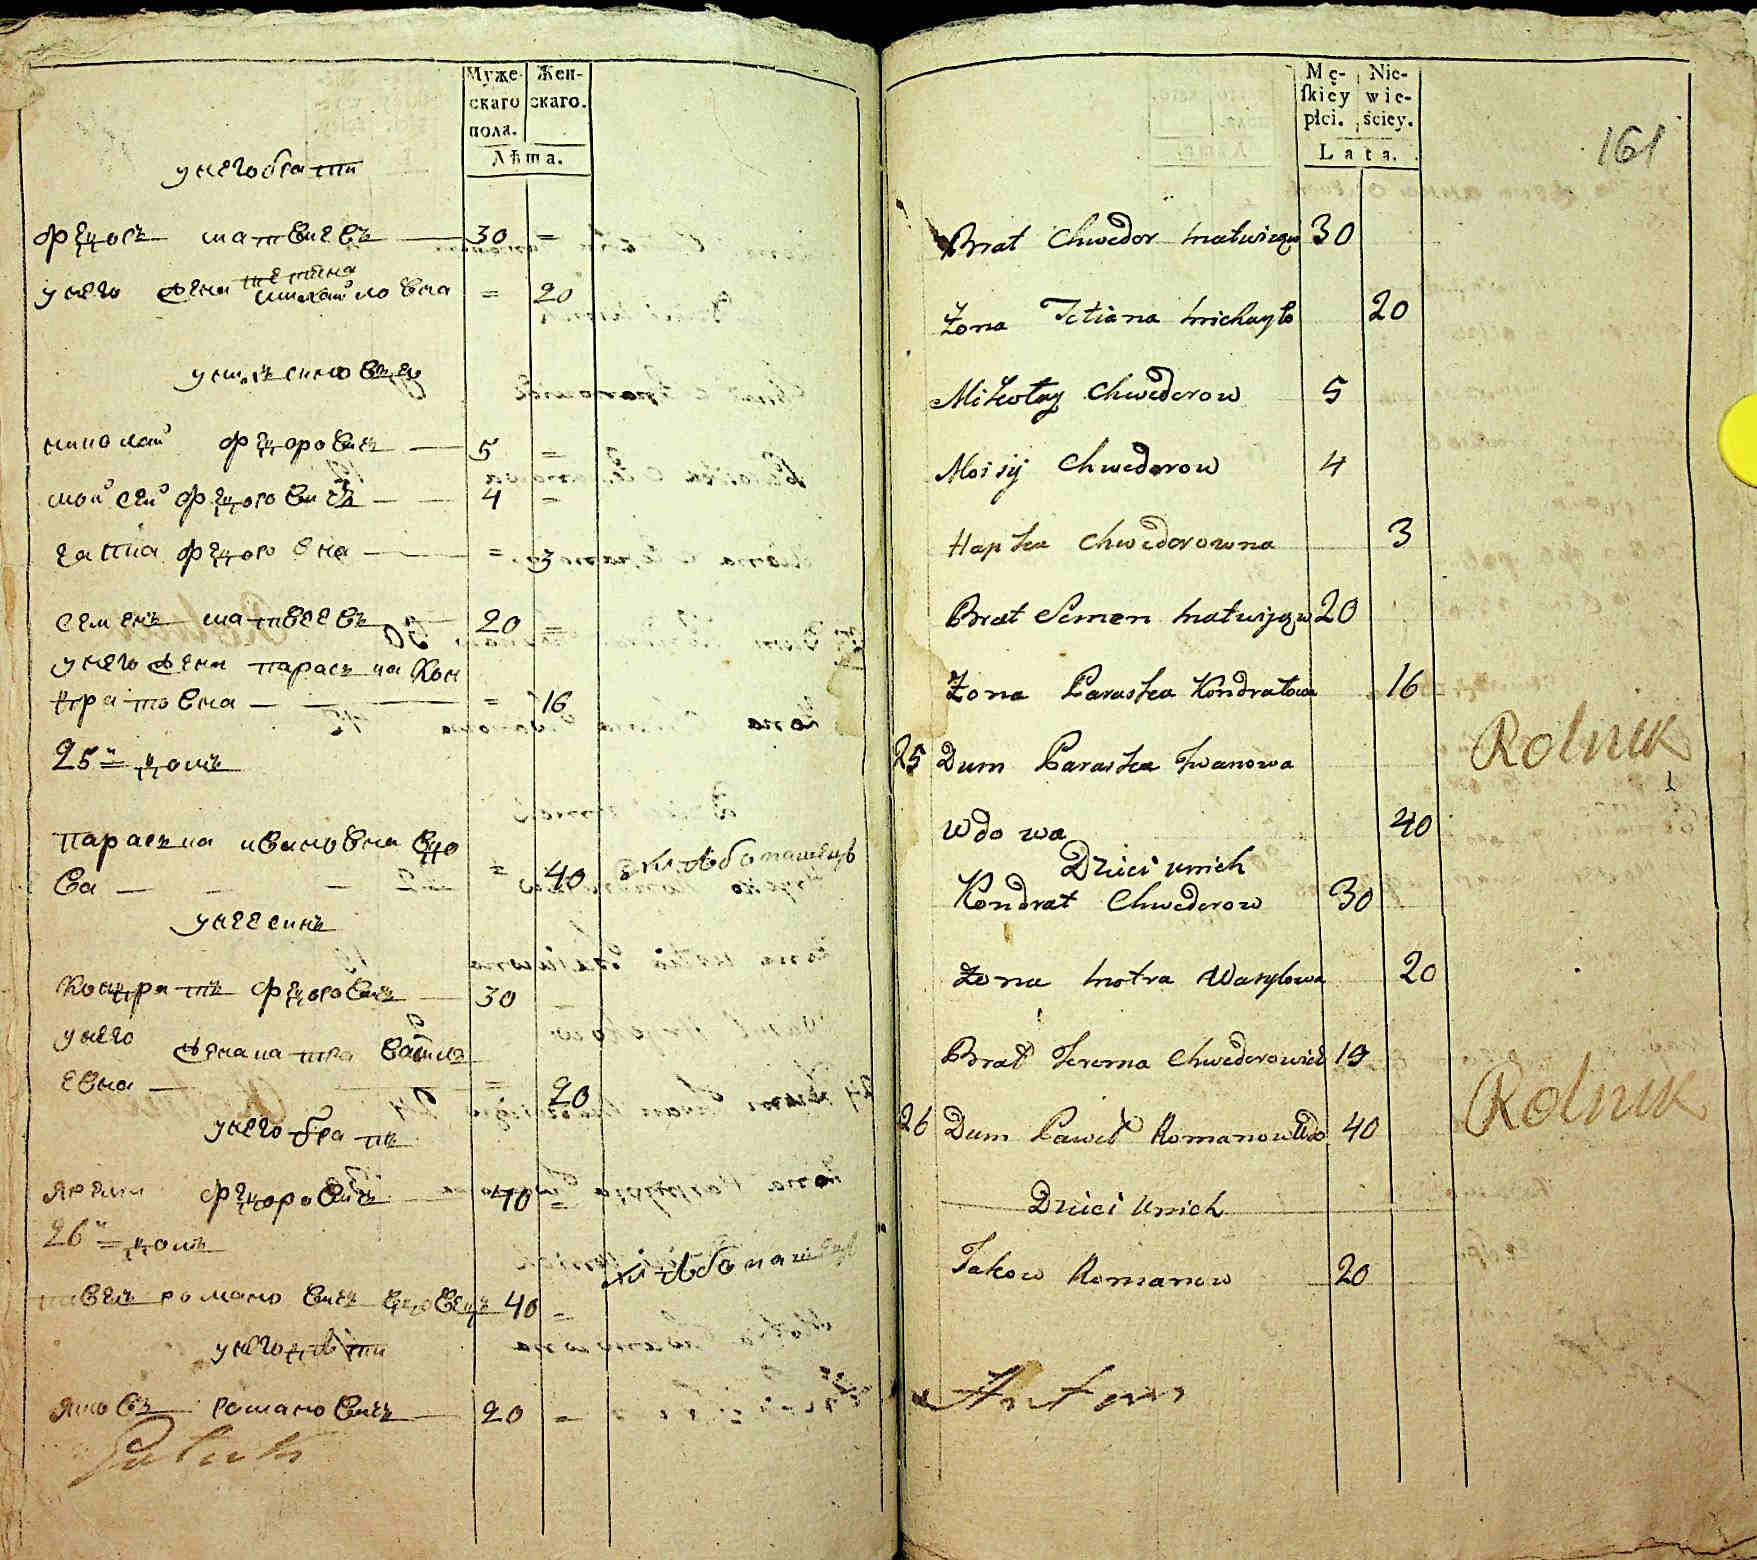 Муже-
скаго
пола.
Жен-
скаго.
Лѣта.
у него брати
Федоръ матвиевъ 30 =
у него жена тетяна
михайловна = 20
у михъ синовъ
николай федоровичъ 5 =
мойсей федоровичъ 4 =
гапка федоровна = 3
семенъ матвеевъ 20 =
у него жена параска кон
дратовна = 16
25й домъ
параска ивановна вдо
ва = 40 хлѣбопашецъ
у нее синъ
кондратъ федоровичъ 30
у него жена мотра васил
евна = 20
у него братъ
ярема федоровичъ 40 =
26й домъ
павелъ романовичъ вдовецъ 40 =
хлѣбопашецъ
у него дѣти
яковъ романовичъ 20 =
Mę-
ſkiey
płci.
Nie-
wie-
ściey.
Lata.
161
Brat Chwedor Matwiegw 30
Żona Tetiana Michayło 20
Mikołay Chwederow 5
Moisiy Chwederow 4
Hapka Chwederowna 3
Brat Semen Matwijegw 20
Żona Paraska Kondratowa 16
25 Dum Paraska Iwanowa
Rolnik
Wdowa 40
Dzieci unich
Kondrat Chwederow 30
Żona Motra Wasylowa 20
Brat Jerema Chwederowicz 19
26 Dum Paweł Romanow Wdo 40
Rolnik
Dzieci unich
Jakow Romanow 20
Antoni